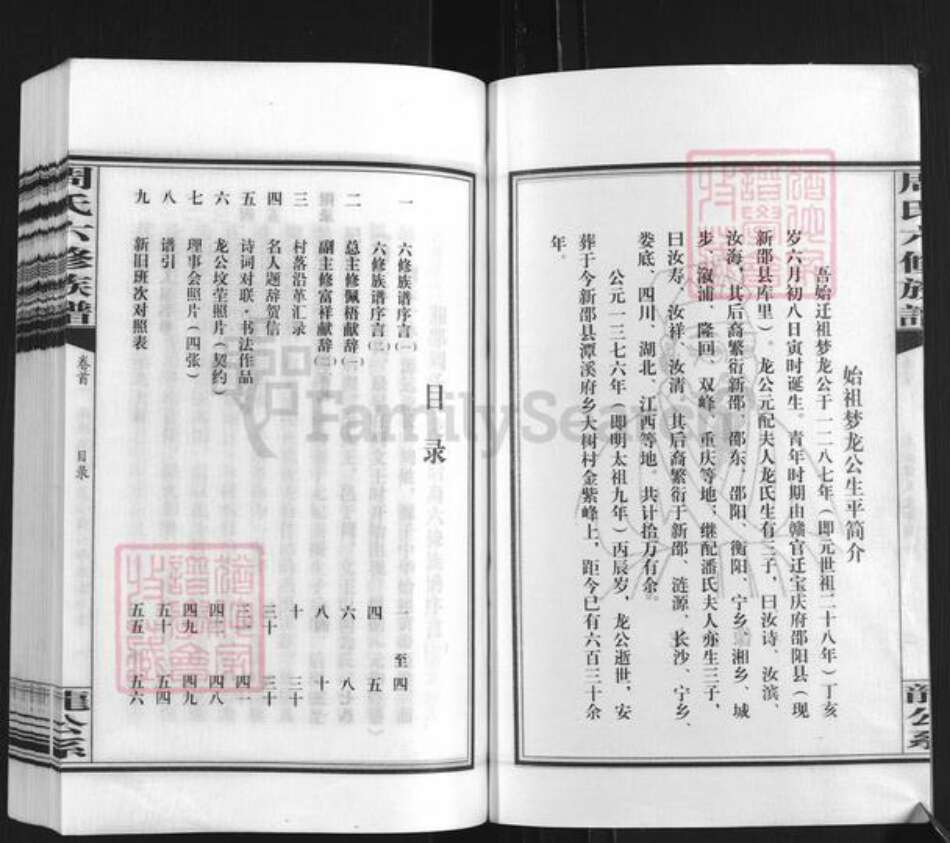 始祖梦龙公生平简介
吾始迁祖梦龙公于一二八七年（即元世祖二十八年）丁亥
岁六月初八日寅时诞生。青年时期由赣官迁宝庆府邵阳县（现
新邵县库里）。龙公元配夫人龙氏生有三子，曰汝诗、汝滨、
汝海，其后裔繁衍新邵、邵东、邵阳、衡阳、宁乡、湘乡、城
步、溆浦、隆回、双峰、重庆等地；继配潘氏夫人亦生三子，
曰汝寿、汝祥、汝清。其后裔繁衍于新邵、涟源、长沙、宁乡、
娄底、四川、湖北、江西等地。共计拾万有余。
公元一三七六年（即明太祖九年）丙辰岁，龙公逝世，安
葬于今新邵县潭溪府乡大树村金紫峰上，距今已有六百三十余
年。
周氏六修族谱
龍公系
目录
一 六修族谱序言（一） 一 至 四
六修族谱序言（二） 四 五
二 总主修佩梧献辞（一） 六 八
副主修富祥献辞（二） 八 十
三 村落沿革汇录 十 三十
四 名人题辞贺信 三十
五 诗词对联·书法作品 四一
六 龙公坟茔照片（契约） 四二 四八
七 理事会照片（四张） 四九 四九
八 谱引 五十 五四
九 新旧班次对照表 五五 五六
周氏六修族譜
卷首
目录
龍公系
FamilySearch